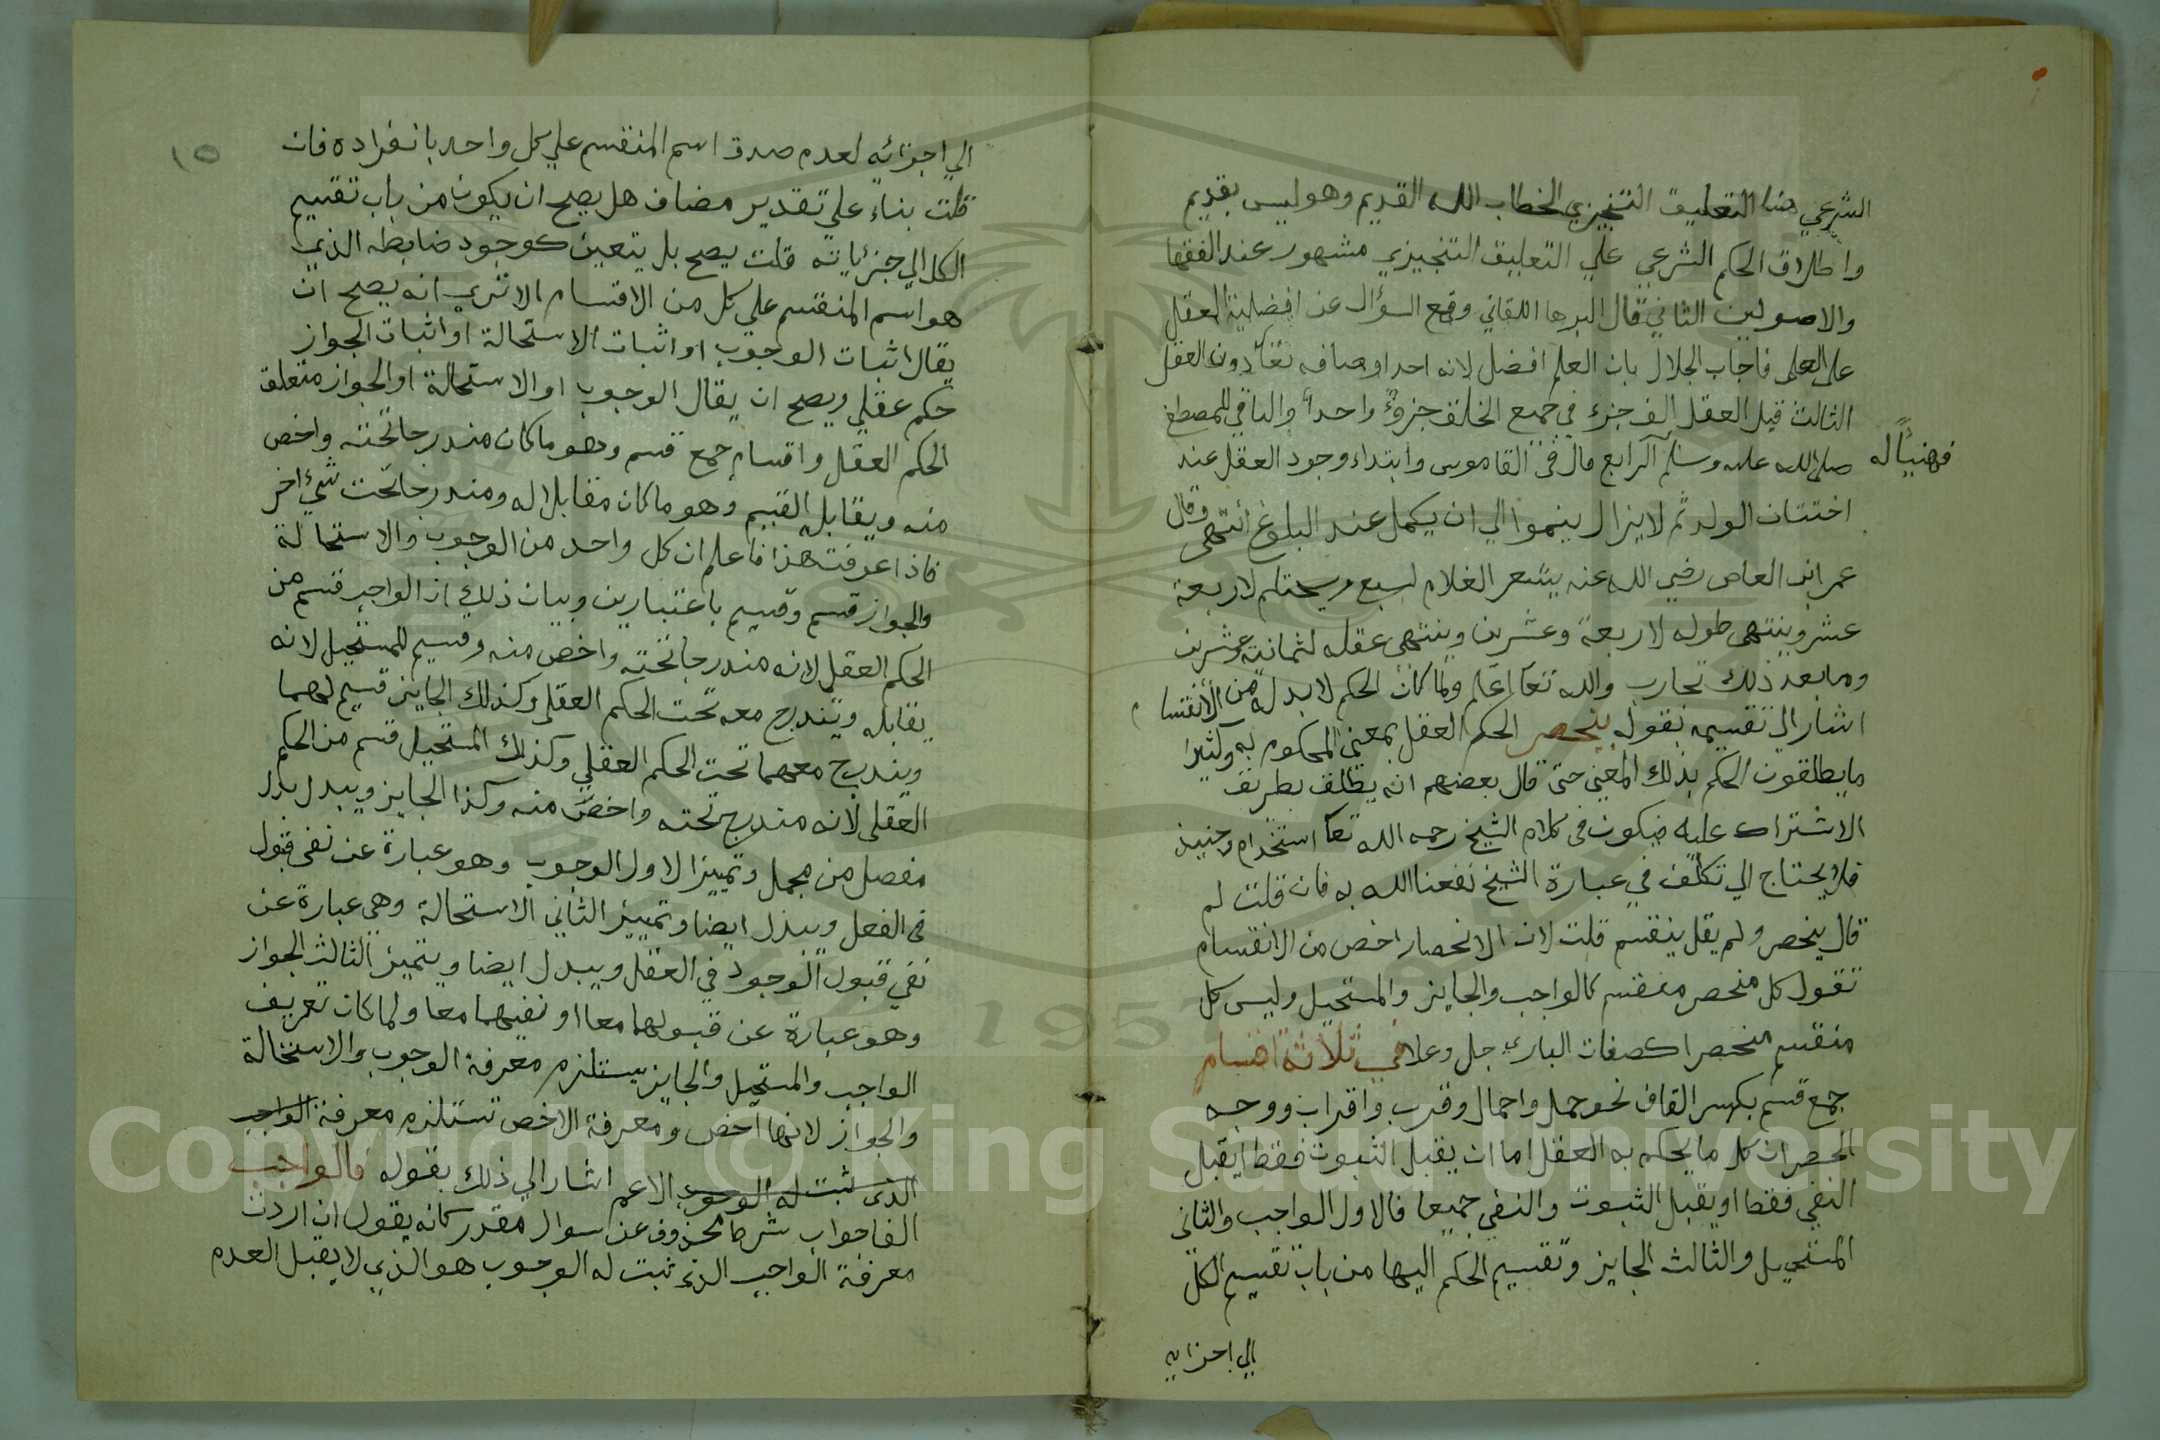 الشرعي هنا التعليق التنجيزي لخطاب الله القديم وهو ليس بقديم
واطلاق الحكم الشرعي علي التعليق التنجيزي مشهور عند الفقها
والاصولين الثاني قال البرها اللقاني وقع السؤال عن افضلية العقل
على العلم فاجاب الجلال بان العلم افضل لانه احد اوصافه تعا دون العقل
الثالث قيل العقل الف جزء في جميع الخلق جزؤ واحدا والباقي للمصطفي
فهنيأ له
صلى الله عليه وسلم الرابع قال في القاموس وابتداء وجود العقل عند
اختتان الولد ثم لا يزال ينموا الي ان يكمل عند البلوغ انتهى وقال
عمر ابن العاص رضي الله عنه يشعر الغلام لسبع ويحتلم لاربعة
عشر وينتهى طوله لاربعة وعشرين وينتهى عقله لثمانية وعشرين
وما بعد ذلك تجارب والله تعا اعلم ولما كان الحكم لا بد له من الانقسام
اشار الي تقسيمه بقوله ينحصر الحكم العقل بمعنى المحكوم به وكثيرا
ما يطلقون الحكم بذلك المعنى حتى قال بعضهم انه يطلق بطريق
الاشتراك عليه فيكون فى كلام الشيخ رحمه الله تعا استخدام وحنيذ
فلا يحتاج الي تكلف في عبارة الشيخ نفعنا الله به فان قلت لم
قال ينحصر ولم يقل ينقسم قلت لان الانحصار اخص من الانقسام
تقول كل منحصر منقسم كالواجب والجايز والمستحيل وليس كل
منقسم منحصرا كصفات الباري جل وعلا في ثلاثة اقسام
جمع قسم بكسر القاف نحو حمل واحمال وقرب واقراب ووجه
الحصر ان كل ما يحكم به العقل اما ان يقبل الثبوت فقط ايقبل
النفي فقط او يقبل الثبوت والنفي جميعا فالاول الواجب والثانى
المستحيل والثالث الجايز وتقسيم الحكم اليها من باب تقسيم الكل
الي اجزايه
١٥
الي اجزائه لعدم صدق اسم المنقسم علي كل واحد بانفراده فان
قلت بناء على تقدير مضاف هل يصح ان يكون من باب تقسيم
الكل الي جزئياته قلت يصح بل يتعين كوجود ضابطه الذي
هو اسم المنقسم علي كل من الاقسام الا تري انه يصح ان
يقال اثبات الوجوب او اثبات الاستحالة او اثبات الجواز
حكم عقلي ويصح ان يقال الوجوب او الاستحالة او الجواز متعلق
الحكم العقل واقسام جمع قسم وهو ما كان مندرجا تحته واخص
منه ويقابله القسيم وهو ما كان مقابلا له ومندرجا تحت شيء اخر
فاذا عرفت هذا فاعلم ان كل واحد من الوجوب والاستحالة
والجواز قسم وقسيم باعتبارين وبيان ذلك ان الواجب قسم من
الحكم العقل لانه مندرجا تحته واخص منه وقسيم للمستحيل لانه
يقابله ويندرج معه تحت الحكم العقلى وكذلك الجايز قسيم لهما
ويندرج معهما تحت الحكم العقلي وكذلك المستحيل قسم من الحكم
العقلى لانه مندرج تحته واخص منه وكذا الجايز ويبدل بدل
مفصل من مجمل وتمييز الاول الوجوب وهو عبارة عن نفى قبول
فى الفعل ويبدل ايضا وتمييز الثاني الاستحالة وهي عبارة عن
نفي قبول الوجود في العقل ويبدل ايضا ويتميز الثالث الجواز
وهو عبارة عن قبولهما معا او نفيهما معا ولما كان تعريف
الواجب والمستحيل والجايز يستلزم معرفة الوجوب والاستحالة
والجواز لانها اخص ومعرفة الاخص تستلزم معرفة الواجب
الذى ثبت له الوجوب الاعم اشار الي ذلك بقوله فالواجب
الفا جواب شرط محذوف عن سوال مقدر كانه يقول ان اردت
معرفة الواجب الذى ثبت له الوجوب هو الذي لا يقبل العدم
Copyright © King Saud University
1957